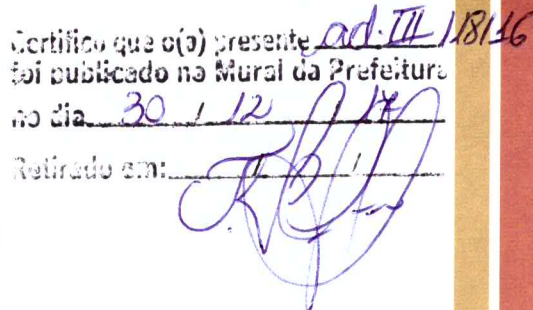 Certifico que o(a) presente ad. III /18/16
foi publicado no Mural da Prefeitura
no dia 30 / 12 / 17
Retirado em: / /